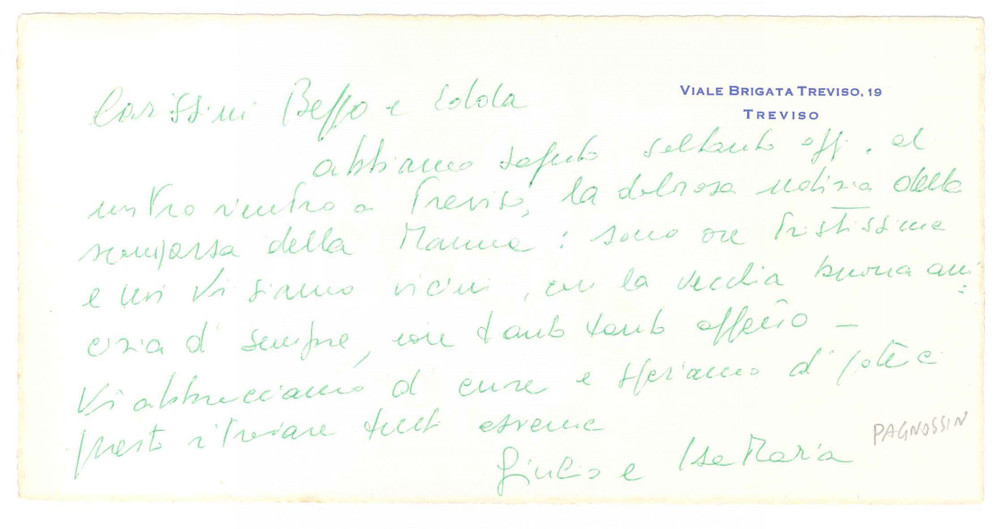 VIALE BRIGATA TREVISO, 19
TREVISO
Carissimi Beppo e
abbiamo saputo soltanto oggi, al
nostro rientro a Treviso, la dolorosa notizia della
scomparsa della Mamma: sono ore tristissime
e noi Vi siamo vicini, con la vecchia buona ami
cizia di sempre, con tanto tanto affetto –
Vi abbracciamo di cuore e speriamo di poterci
presto ritrovare tutti assieme
Giulio e Isa Maria
PAGNOSSIN